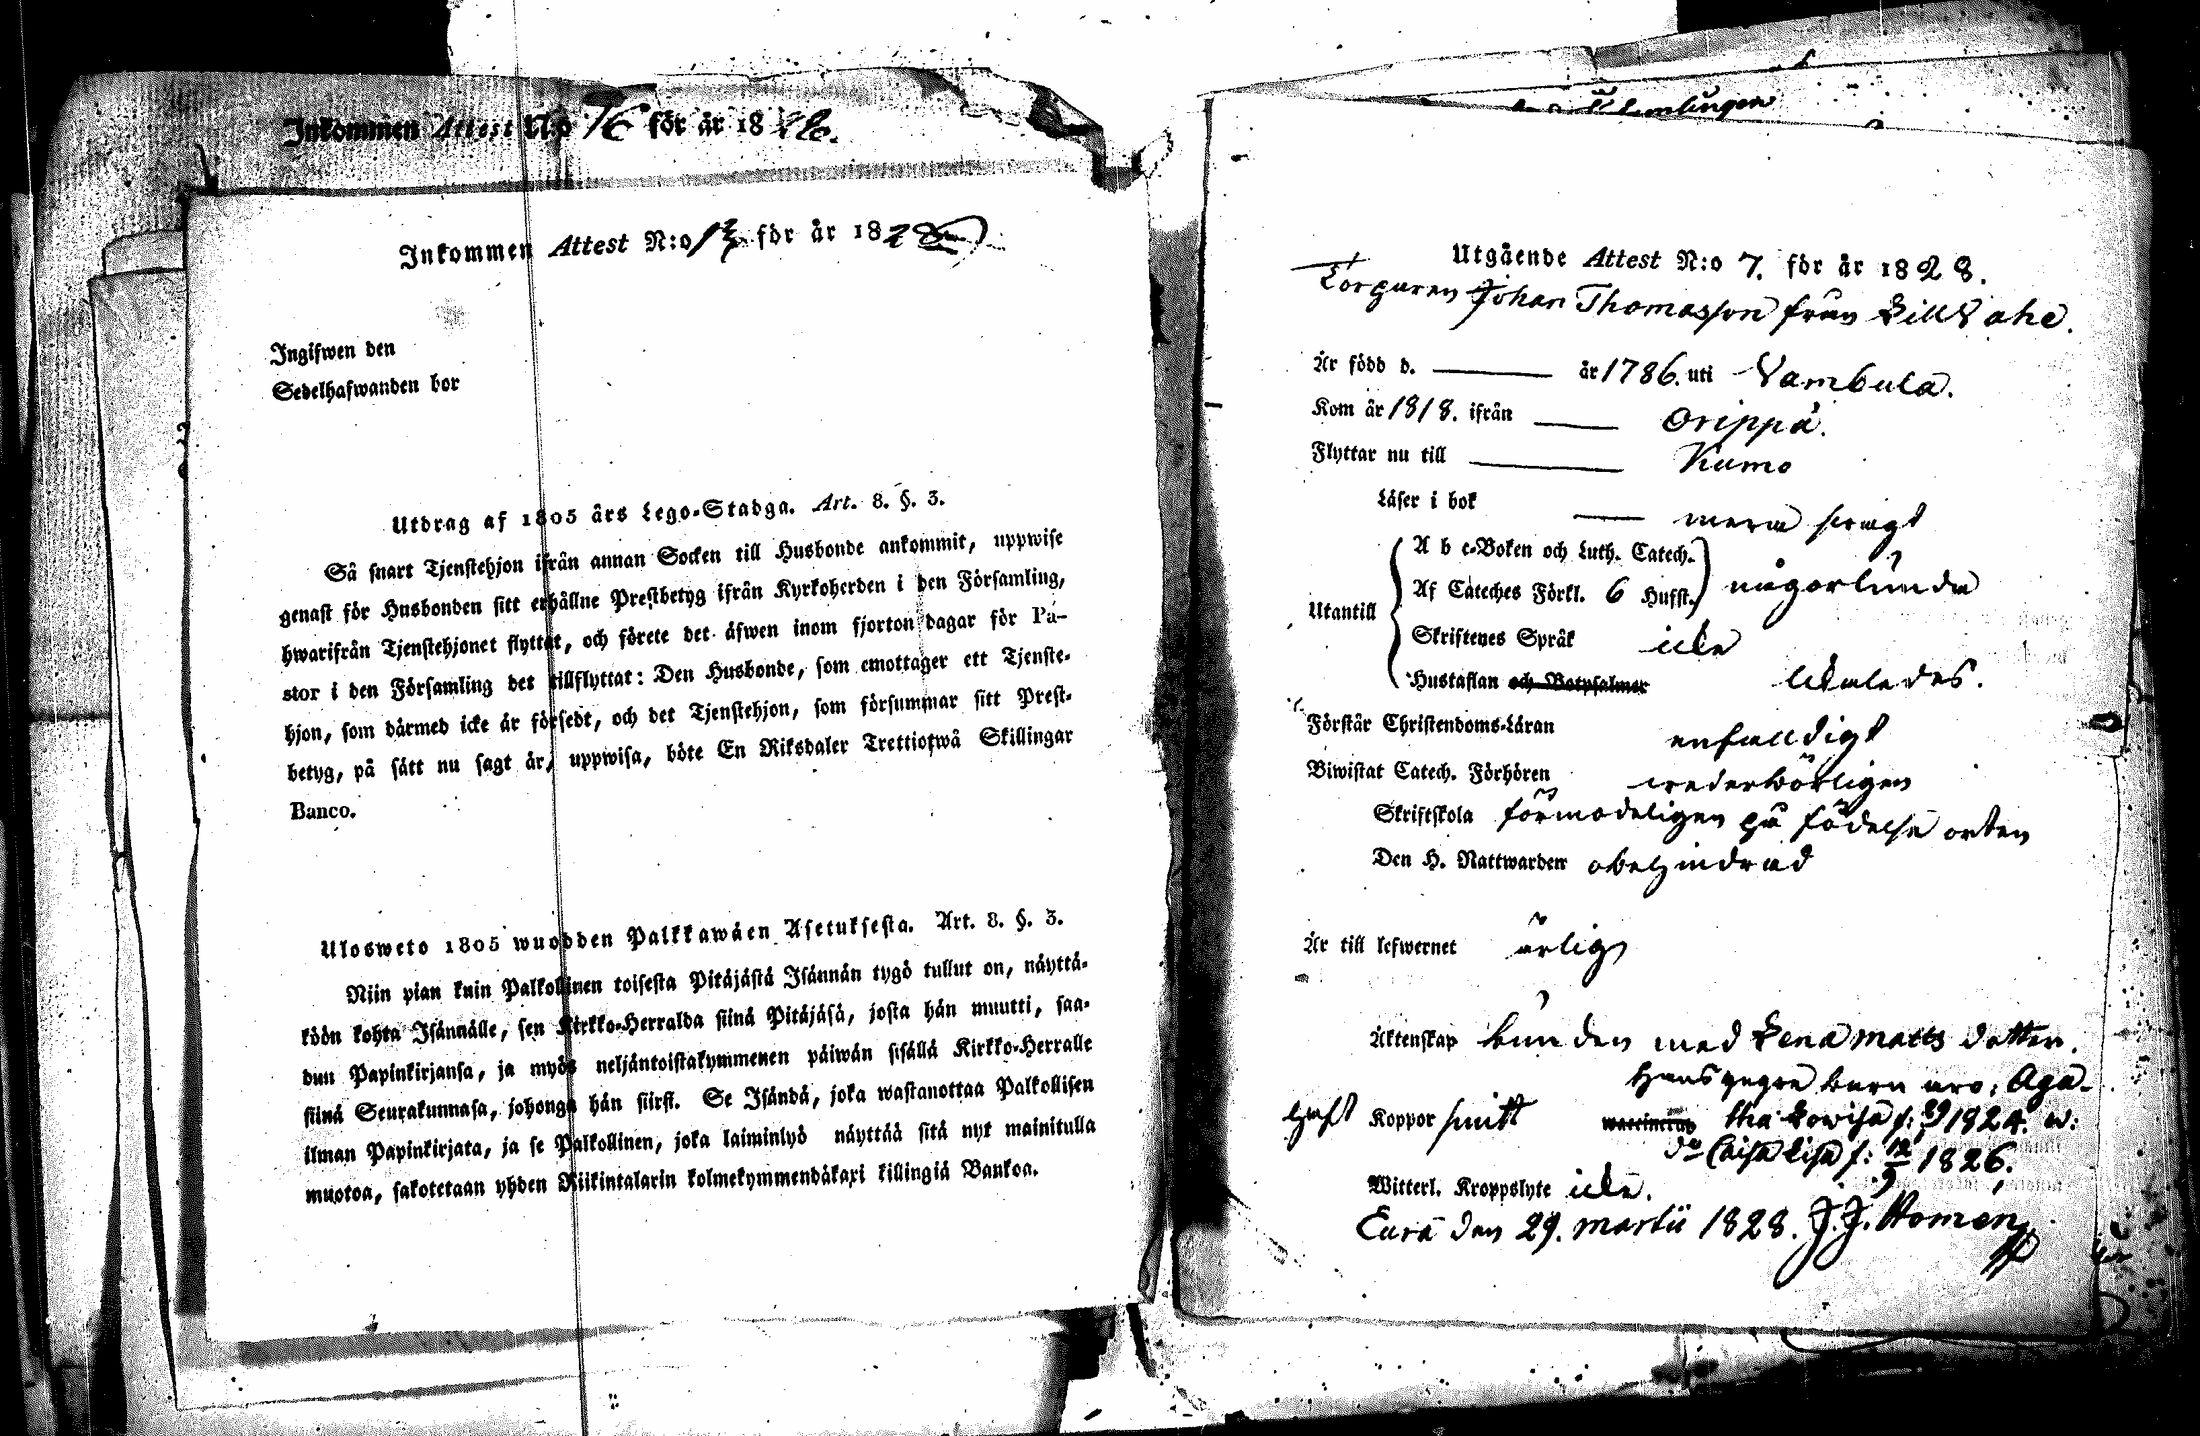 Inkommen Attest N:o 76 för år 18
Inkommen Attest N:o för år 1828
Ingifwen den
Sedelhafwanden bor
Utdrag af 1805 års Lego-Stadga. Art. 8. §. 3.
Så snart Tjenstehjon ifrån annan Socken till Husbonde ankommit, uppwise
genast för Husbonden sitt erhållne Prestbetyg ifrån Kyrkoherden i den Församling,
hwarifrån Tjenstehjonet flyttat, och förete det äfwen inom fjorton dagar för Pa-
stor i den Församling det tillflyttat: Den Husbonde, som emottager ett Tjenste-
hjon, som därmed icke är försedt, och det Tjenstehjon, som försummar sitt Prest-
betyg, på sätt nu sagt är, uppwisa, böte En Riksdaler Trettiotwå Skillingar
Banco.
Ulosweto 1805 wuodden Palkkawäen Asetuksesta. Art. 8. §. 3.
Niin pian kuin Palkollinen toisesta Pitäjästä Isännän tygö tullut on, näyttä-
köön kohta Isännälle, sen Kirkko-Herralda siinä Pitäjäsä, josta hän muutti, saa-
dun Papinkirjansa, ja myös neljäntoistakymmenen päiwän sisällä Kirkko-Herralle
siinä Seurakunnasa, johonga hän siirsi. Se Isändä, joka wastanottaa Palkollisen
ilman Papinkirjata, ja se Palkollinen, joka laiminlyö näyttää sitä nyt mainitulla
muotoa, sakotetaan yhden Riikintalarin kolmekymmendäkaxi killingiä Bankoa.
Utgående Attest N:o 7. för år 1828.
Torparen Johan Thomasson från
Är född d. — år 1786. uti Vambula.
Kom år 1818. ifrån — Orippä.
Flyttar nu till — Kumo
Läser i bok — swagt
A b c-Boken och Luth. Catech.
Utantill Af Cateches Förkl. 6 Hufst. någorlunda
Skriftenes Språk icke
Hustaflan och Botpsalmer likaledes.
Förstår Christendoms-Läran enfaldigt
Biwistat Catech. Förhören wederbörligen
Skriftskola förmodeligen på födelse orten
Den H. Nattwarden obehindrad
Är till lefwernet ärlig
Äktenskap bunden med Lena Matts dotter.
Hans yngre barn äro: Aga-
haft Koppor smitt tha Lowisa f: 1824. w:
Caisa Lisa f: 1826.
Witterl. Kroppslyte icke.
Eura den 29. Martii 1828. J. J. Homén